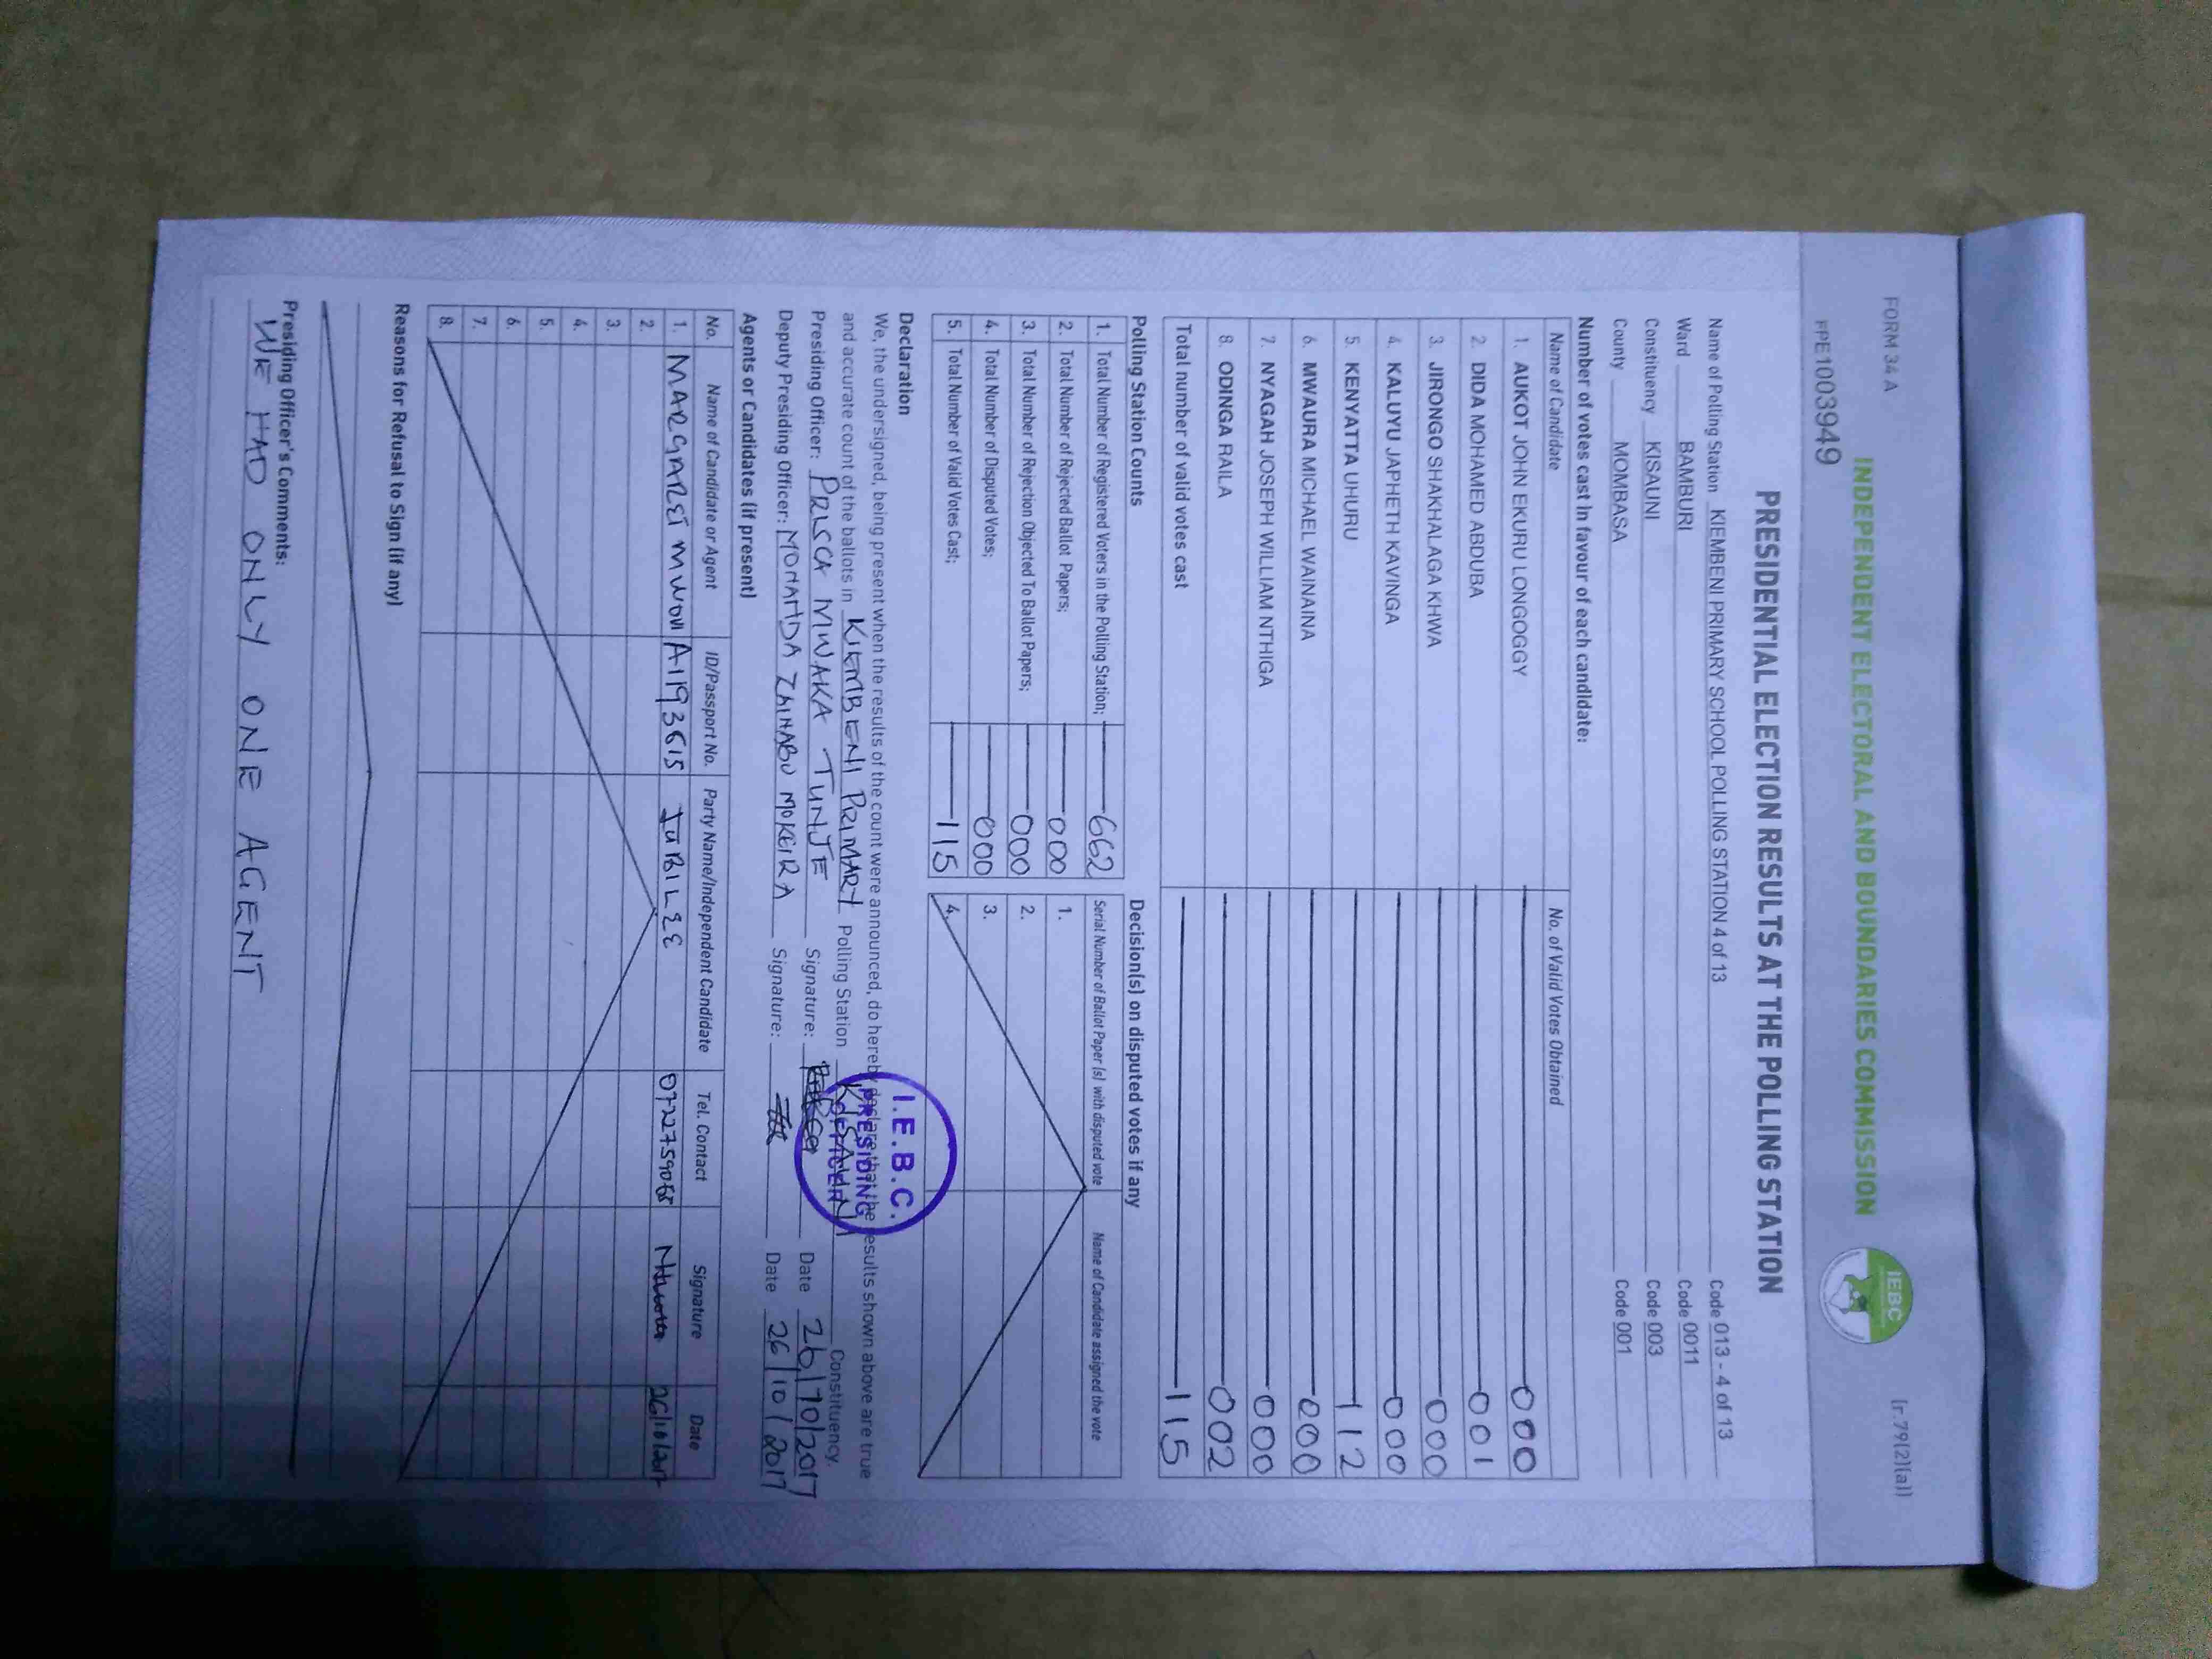 FORM 34 A
[r.79(2)(a)]
INDEPENDENT ELECTORAL AND BOUNDARIES COMMISSION
IEBC
FPE1003949
PRESIDENTIAL ELECTION RESULTS AT THE POLLING STATION
Name of Polling Station KIEMBENI PRIMARY SCHOOL POLLING STATION 4 of 13 Code 013 - 4 of 13
Ward BAMBURI Code 0011
Constituency KISAUNI Code 003
County MOMBASA Code 001
Number of votes cast in favour of each candidate:
Name of Candidate No. of Valid Votes Obtained
1. AUKOT JOHN EKURU LONGOGGY 000
2. DIDA MOHAMED ABDUBA 001
3. JIRONGO SHAKHALAGA KHWA 000
4. KALUYU JAPHETH KAVINGA 000
5. KENYATTA UHURU 112
6. MWAURA MICHAEL WAINAINA 000
7. NYAGAH JOSEPH WILLIAM NTHIGA 000
8. ODINGA RAILA 002
Total number of valid votes cast 115
Polling Station Counts
1. Total Number of Registered Voters in the Polling Station; 662
2. Total Number of Rejected Ballot Papers; 000
3. Total Number of Rejection Objected To Ballot Papers; 000
4. Total Number of Disputed Votes; 000
5. Total Number of Valid Votes Cast; 115
Decision(s) on disputed votes if any
Serial Number of Ballot Paper (s) with disputed vote Name of Candidate assigned the vote
1.
2.
3.
4.
Declaration
We, the undersigned, being present when the results of the count were announced, do hereby declare that the results shown above are true
and accurate count of the ballots in KIEMBENI PRIMARY Polling Station KISAUNI Constituency.
Presiding Officer: PRISCA MWAKA TUNJE Signature: Date 26/10/2017
Deputy Presiding Officer: MOHAMDA ZAINABU MOKEIRA Signature: Date 26/10/2017
I.E.B.C.
PRESIDING
OFFICER
Agents or Candidates (if present)
No. Name of Candidate or Agent ID/Passport No. Party Name/Independent Candidate Tel. Contact Signature Date
1. MARGARET A1193615 JUBILEE 26/10/2017
2.
3.
4.
5.
6.
7.
8.
Reasons for Refusal to Sign (if any)
Presiding Officer's Comments:
WE HAD ONLY ONE AGENT